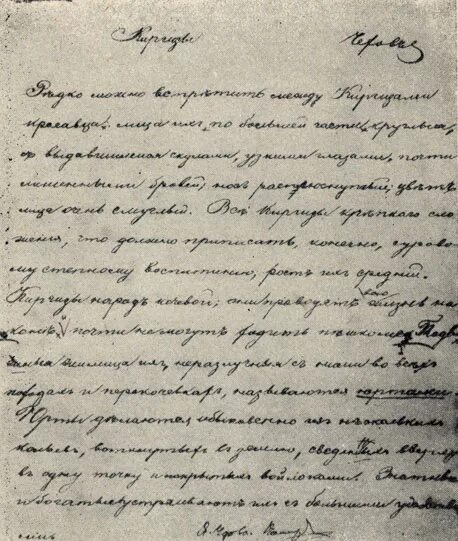 Киргизы Чеховъ
Рѣдко можно встрѣтить между Киргизами
красавца. Лица ихъ, по большей части, круглыя,
съ выдавшимися скулами, узкими глазами, почти
лишенными бровей; носъ расплюснутый; цвѣтъ
лица очень смуглый. Всѣ Киргизы крѣпкаго сло
женія, что должно приписать, конечно, сурово
му степному воспитанію; ростъ ихъ средній.
Киргизы народъ кочевой; они проводятъ жизнь на
конѣ, и почти не могутъ ходить пѣшкомъ.
жилища ихъ, неразлучныя съ ними во всѣхъ
походахъ и перекочевкахъ, называются юртами.
Юрты дѣлаются обыкновенно изъ нѣсколькихъ
кольевъ, воткнутыхъ въ землю, сведенныхъ вверху
въ одну точку и накрытыхъ войлоками. Знатные
и богатые устраиваютъ ихъ съ большими удобства
ми